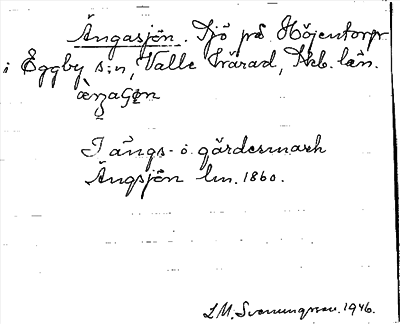 Ängasjön. Sjö på Höjentorps
i Eggby s:n, Valle härad, Skb. län.
I ängs- o. gärdesmark
Ängsjön lm. 1860.
L.M. Svanungsson. 1946.